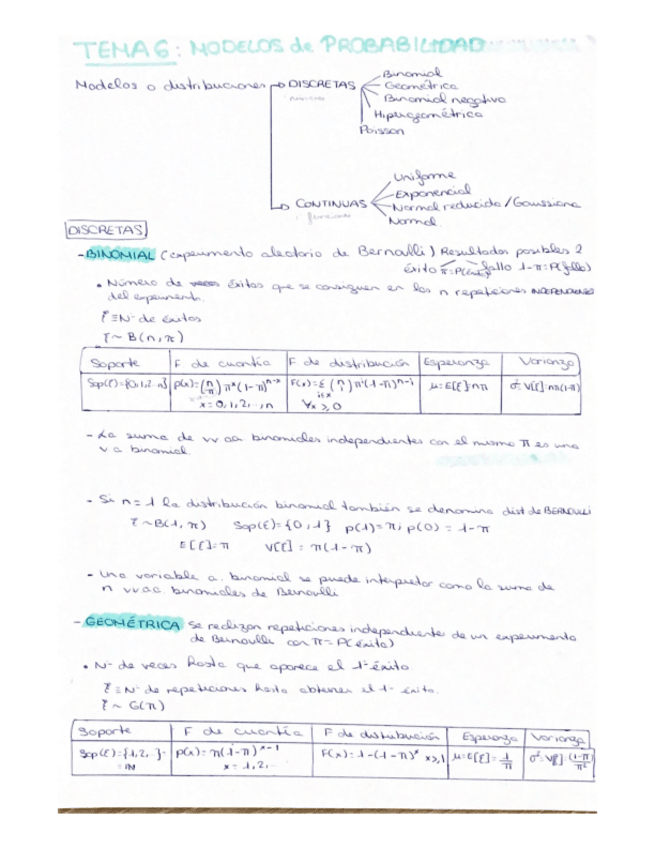 TEMA 6: MODELOS de PROBABILIDAD
Modelos o distribuciones
DISCRETAS
Binomial
Geométrica
Binomial negativa
Hipergeométrica
Poisson
CONTINUAS
Uniforme
Exponencial
Normal reducida / Gaussiana
Normal
DISCRETAS
- BINOMIAL (experimento aleatorio de Bernoulli) Resultados posibles 2
éxito π=P(éxito) fallo 1-π=P(fallo)
• Número de veces éxitos que se consiguen en las n repeticiones INDEPENDIENTES
del experimento.
ξ ≡ Nº de éxitos
ξ ~ B(n, π)
Soporte | F de cuantía | F de distribución | Esperanza | Varianza
Sop(ξ)={0,1,2..n} | p(x)=(n/π) π^x (1-π)^n-x | F(x)=Σ (n/i) π^i (1-π)^n-i | μ=E[ξ]=nπ | σ²=V[ξ]=nπ(1-π)
x=0,1,2,..,n | i≤x
∀x ≥ 0
- La suma de vv aa binomiales independientes con el mismo π es una
v a binomial
- Si n=1 la distribución binomial también se denomina dist de BERNOULLI
ξ ~ B(1, π) Sop(ξ)={0,1} p(1)=π; p(0)=1-π
E[ξ]=π V[ξ]=π(1-π)
- Una variable a. binomial se puede interpretar como la suma de
n vv.aa. binomiales de Bernoulli
- GEOMÉTRICA Se realizan repeticiones independiente de un experimento
de Bernoulli con π=P(éxito)
• Nº de veces hasta que aparece el 1º éxito
ξ ≡ Nº de repeticiones hasta obtener el 1º éxito.
ξ ~ G(π)
Soporte | F de cuantía | F de distribución | Esperanza | Varianza
Sop(ξ)={1,2,..} | p(x)=π(1-π)^x-1 | F(x)=1-(1-π)^x x≥1 | μ=E[ξ]=1/π | σ²=V[ξ]=(1-π)/π²
=IN | x=1,2,..